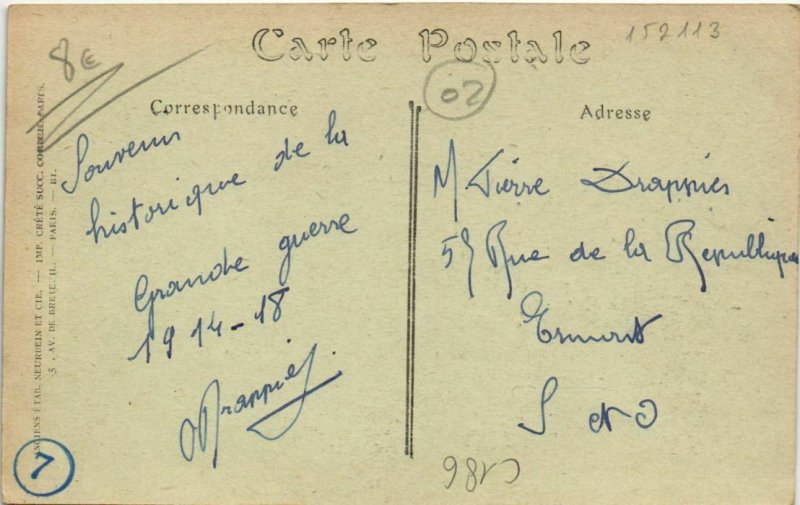 Carte Postale
152113
8€
02
Correspondance
Adresse
Souvenir
historique de la
Grande guerre
1914-18
Drappier
M Pierre Drappier
Rue de la Republique
Ermont
S et O
7
ANCIENS ÉTAB. NEURDEIN ET CIE. — IMP. CRÉTÉ SUCC. CORBEIL, PARIS.
5, AV. DE BRETEUIL. — PARIS. — BI.